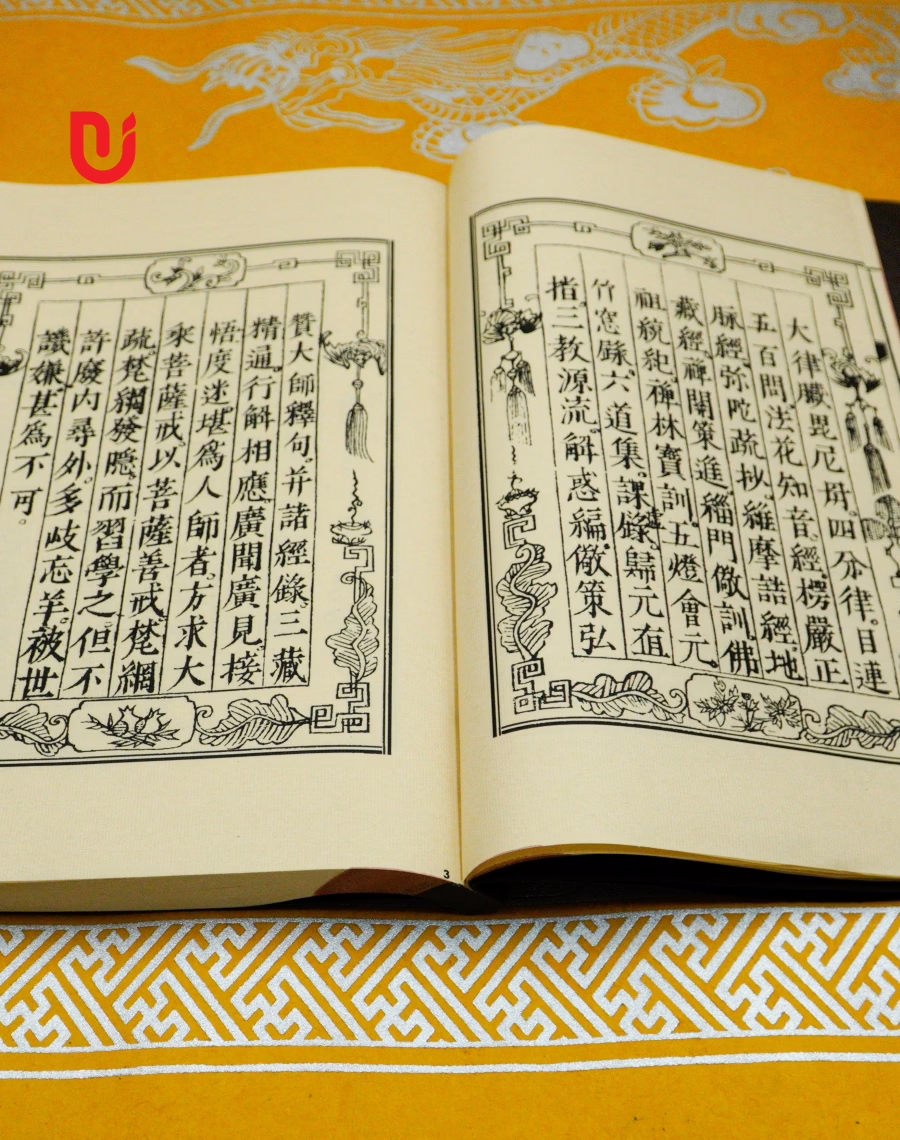 大律臟毘尼冊。四分律。目連
五百問。法花知音。經。楞嚴正
脉經。弥陀疏抄。維摩詰經。地
藏經。禪関策進。緇門儆訓。佛
祖統紀。禪林寶訓。五燈會元。
竹窓錄。六道集。課錄。歸元直
指。三教源流。觧惑編。儆策弘
賛大師釋句。并諸經錄。三藏
精通。行觧相應。廣聞廣見。接
悟度迷。堪爲人師者。方求大
乘菩薩戒。以菩薩善戒。梵網
疏。梵網發隱。而習學之。但不
許廢內尋外。多歧忘羊。被世
譏嫌。甚爲不可。
3